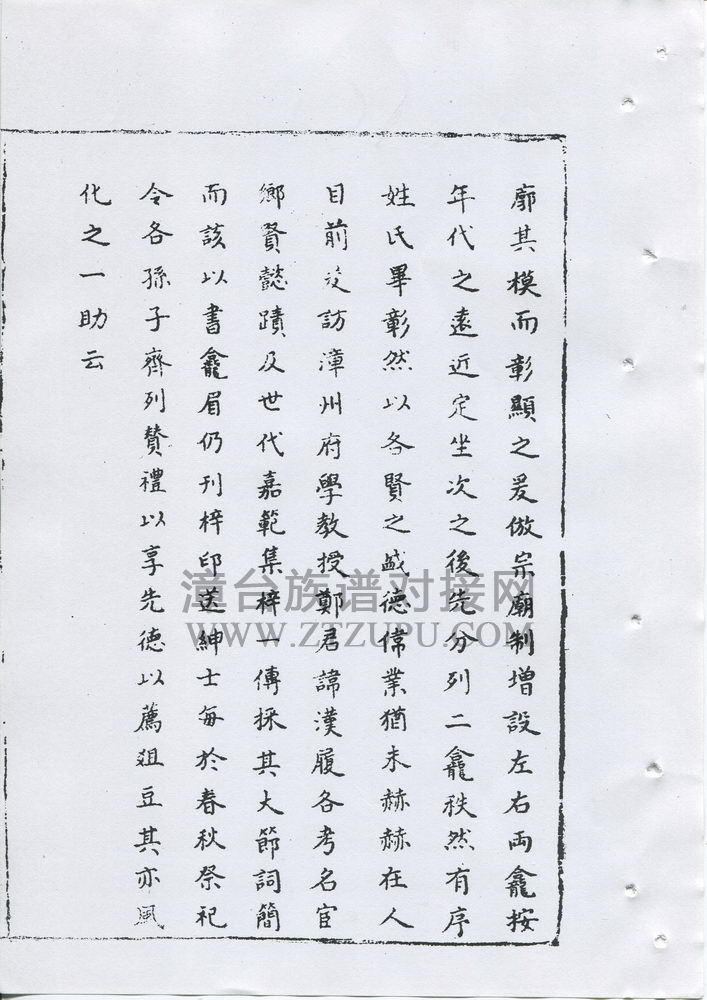 廓其模而彰顯之爰倣宗廟制增設左右両龕按
年代之遠近定坐次之後先分列二龕秩然有序
姓氏畢彰然以各賢之盛德偉業猶未赫赫在人
目前爰訪漳州府學教授鄭君諱漢履各考名宦
鄉賢懿蹟及世代嘉範集梓一傳採其大節詞簡
而該以書龕眉仍刊梓印送紳士每於春秋祭祀
令各孫子齊列贊禮以享先德以薦俎豆其亦風
化之一助云
漳台族谱对接网
WWW.ZTZUPU.COM